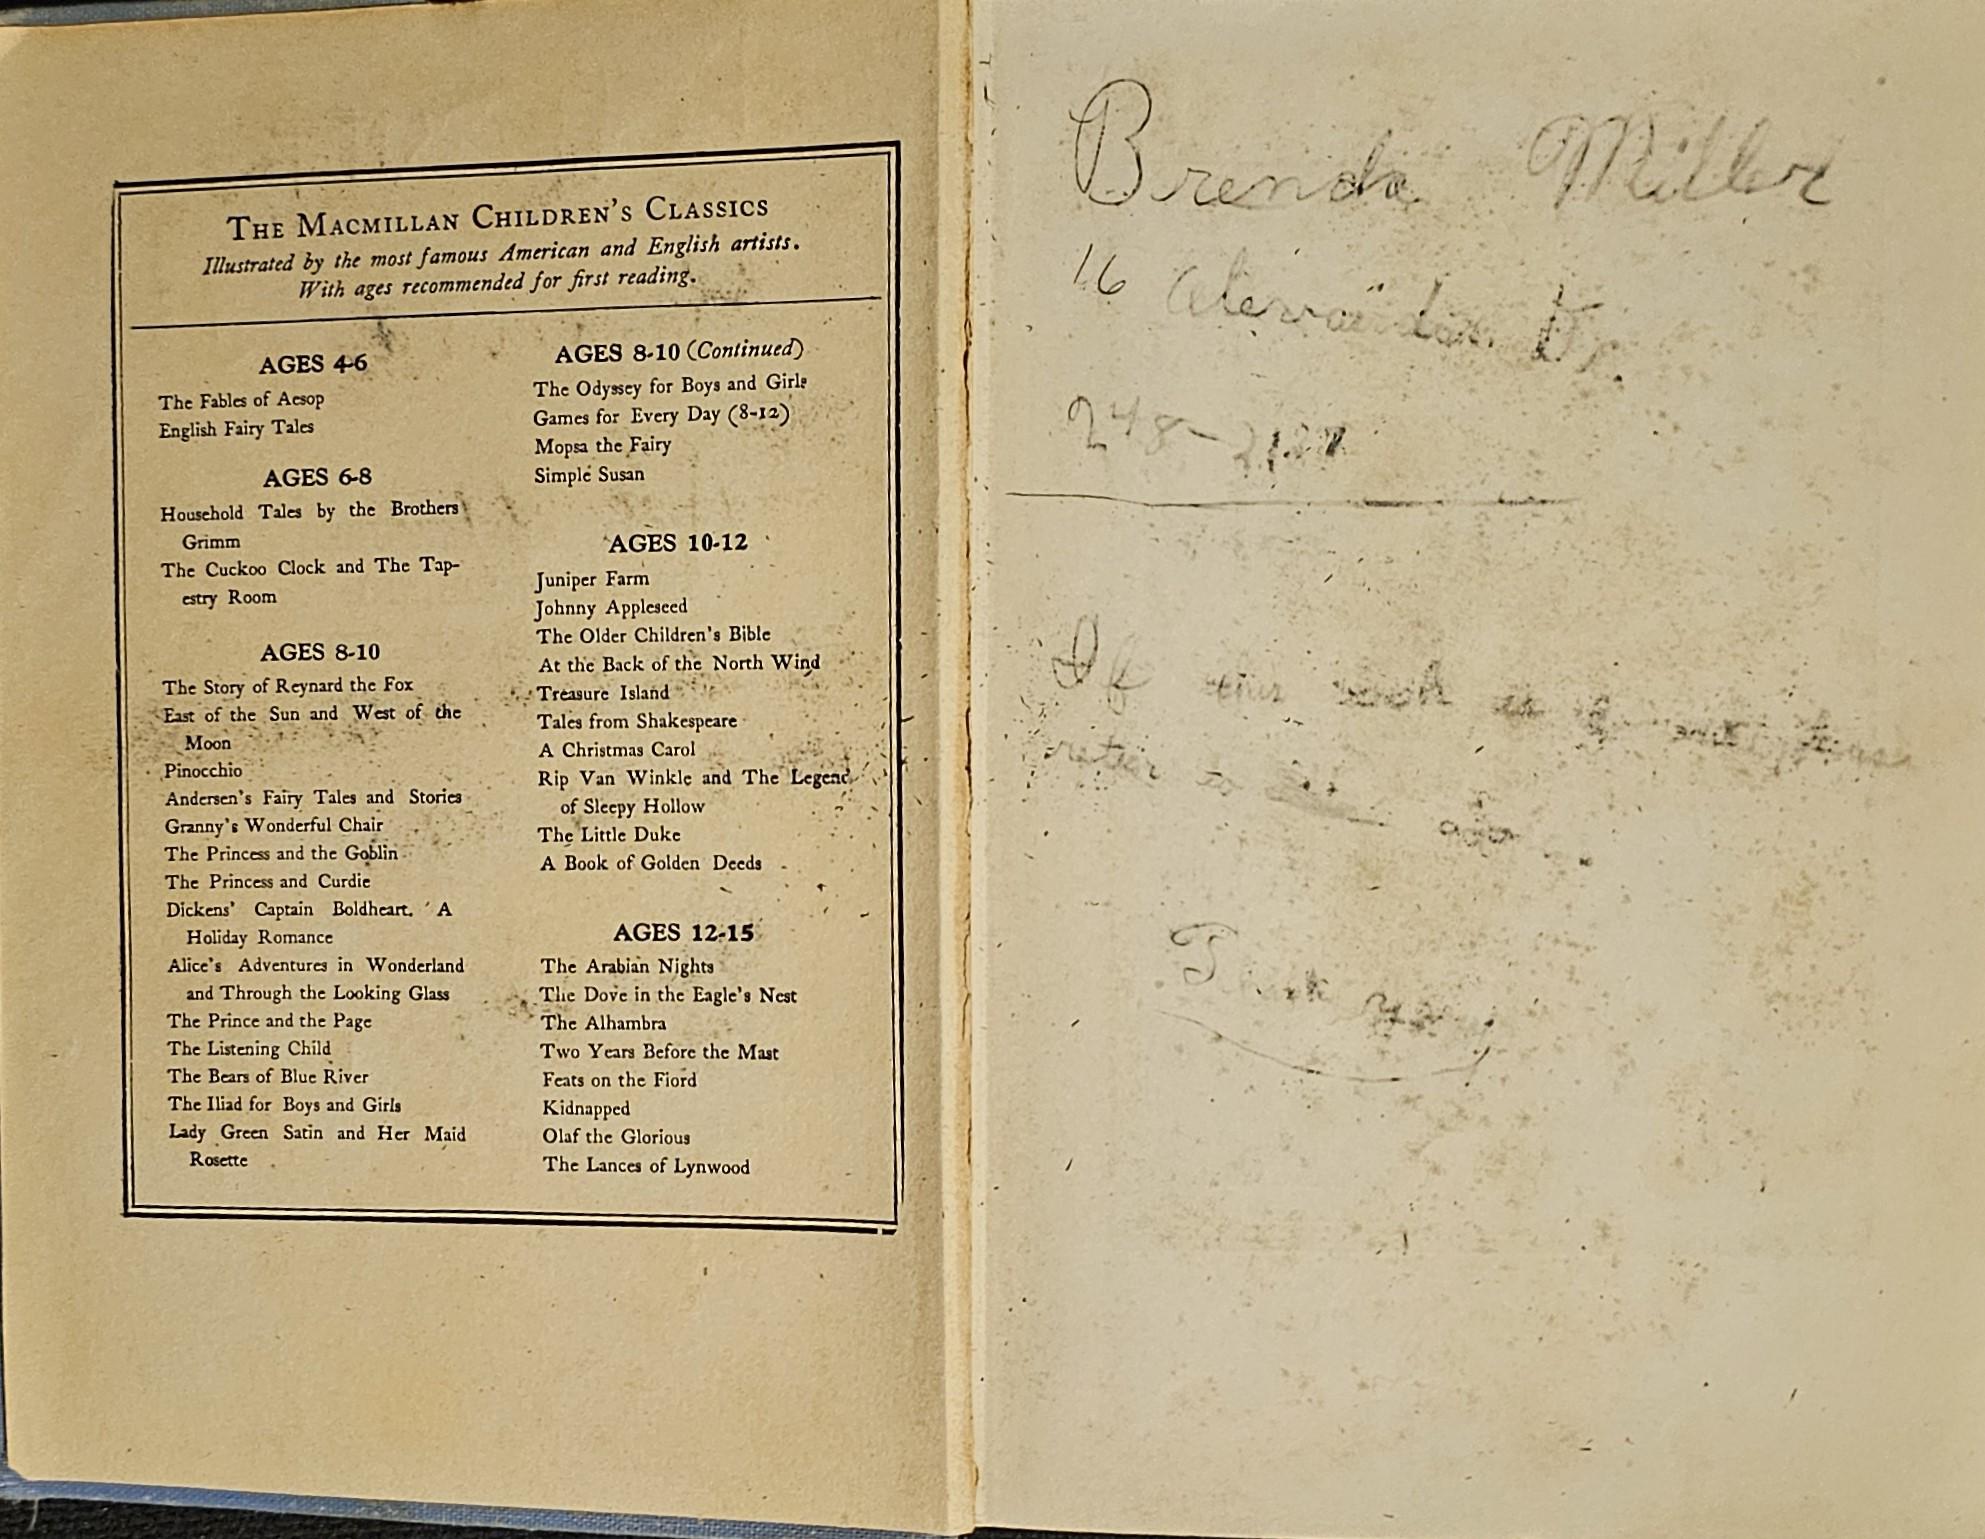 THE MACMILLAN CHILDREN'S CLASSICS
Illustrated by the most famous American and English artists.
With ages recommended for first reading.
AGES 4-6
The Fables of Aesop
English Fairy Tales
AGES 6-8
Household Tales by the Brothers
Grimm
The Cuckoo Clock and The Tap-
estry Room
AGES 8-10
The Story of Reynard the Fox
East of the Sun and West of the
Moon
Pinocchio
Andersen's Fairy Tales and Stories
Granny's Wonderful Chair
The Princess and the Goblin
The Princess and Curdie
Dickens' Captain Boldheart. A
Holiday Romance
Alice's Adventures in Wonderland
and Through the Looking Glass
The Prince and the Page
The Listening Child
The Bears of Blue River
The Iliad for Boys and Girls
Lady Green Satin and Her Maid
Rosette
AGES 8-10 (Continued)
The Odyssey for Boys and Girls
Games for Every Day (8-12)
Mopsa the Fairy
Simple Susan
AGES 10-12
Juniper Farm
Johnny Appleseed
The Older Children's Bible
At the Back of the North Wind
Treasure Island
Tales from Shakespeare
A Christmas Carol
Rip Van Winkle and The Legend
of Sleepy Hollow
The Little Duke
A Book of Golden Deeds
AGES 12-15
The Arabian Nights
The Dove in the Eagle's Nest
The Alhambra
Two Years Before the Mast
Feats on the Fiord
Kidnapped
Olaf the Glorious
The Lances of Lynwood
Brenda Miller
16 Dr.
248-
If this book is
to
Thank you